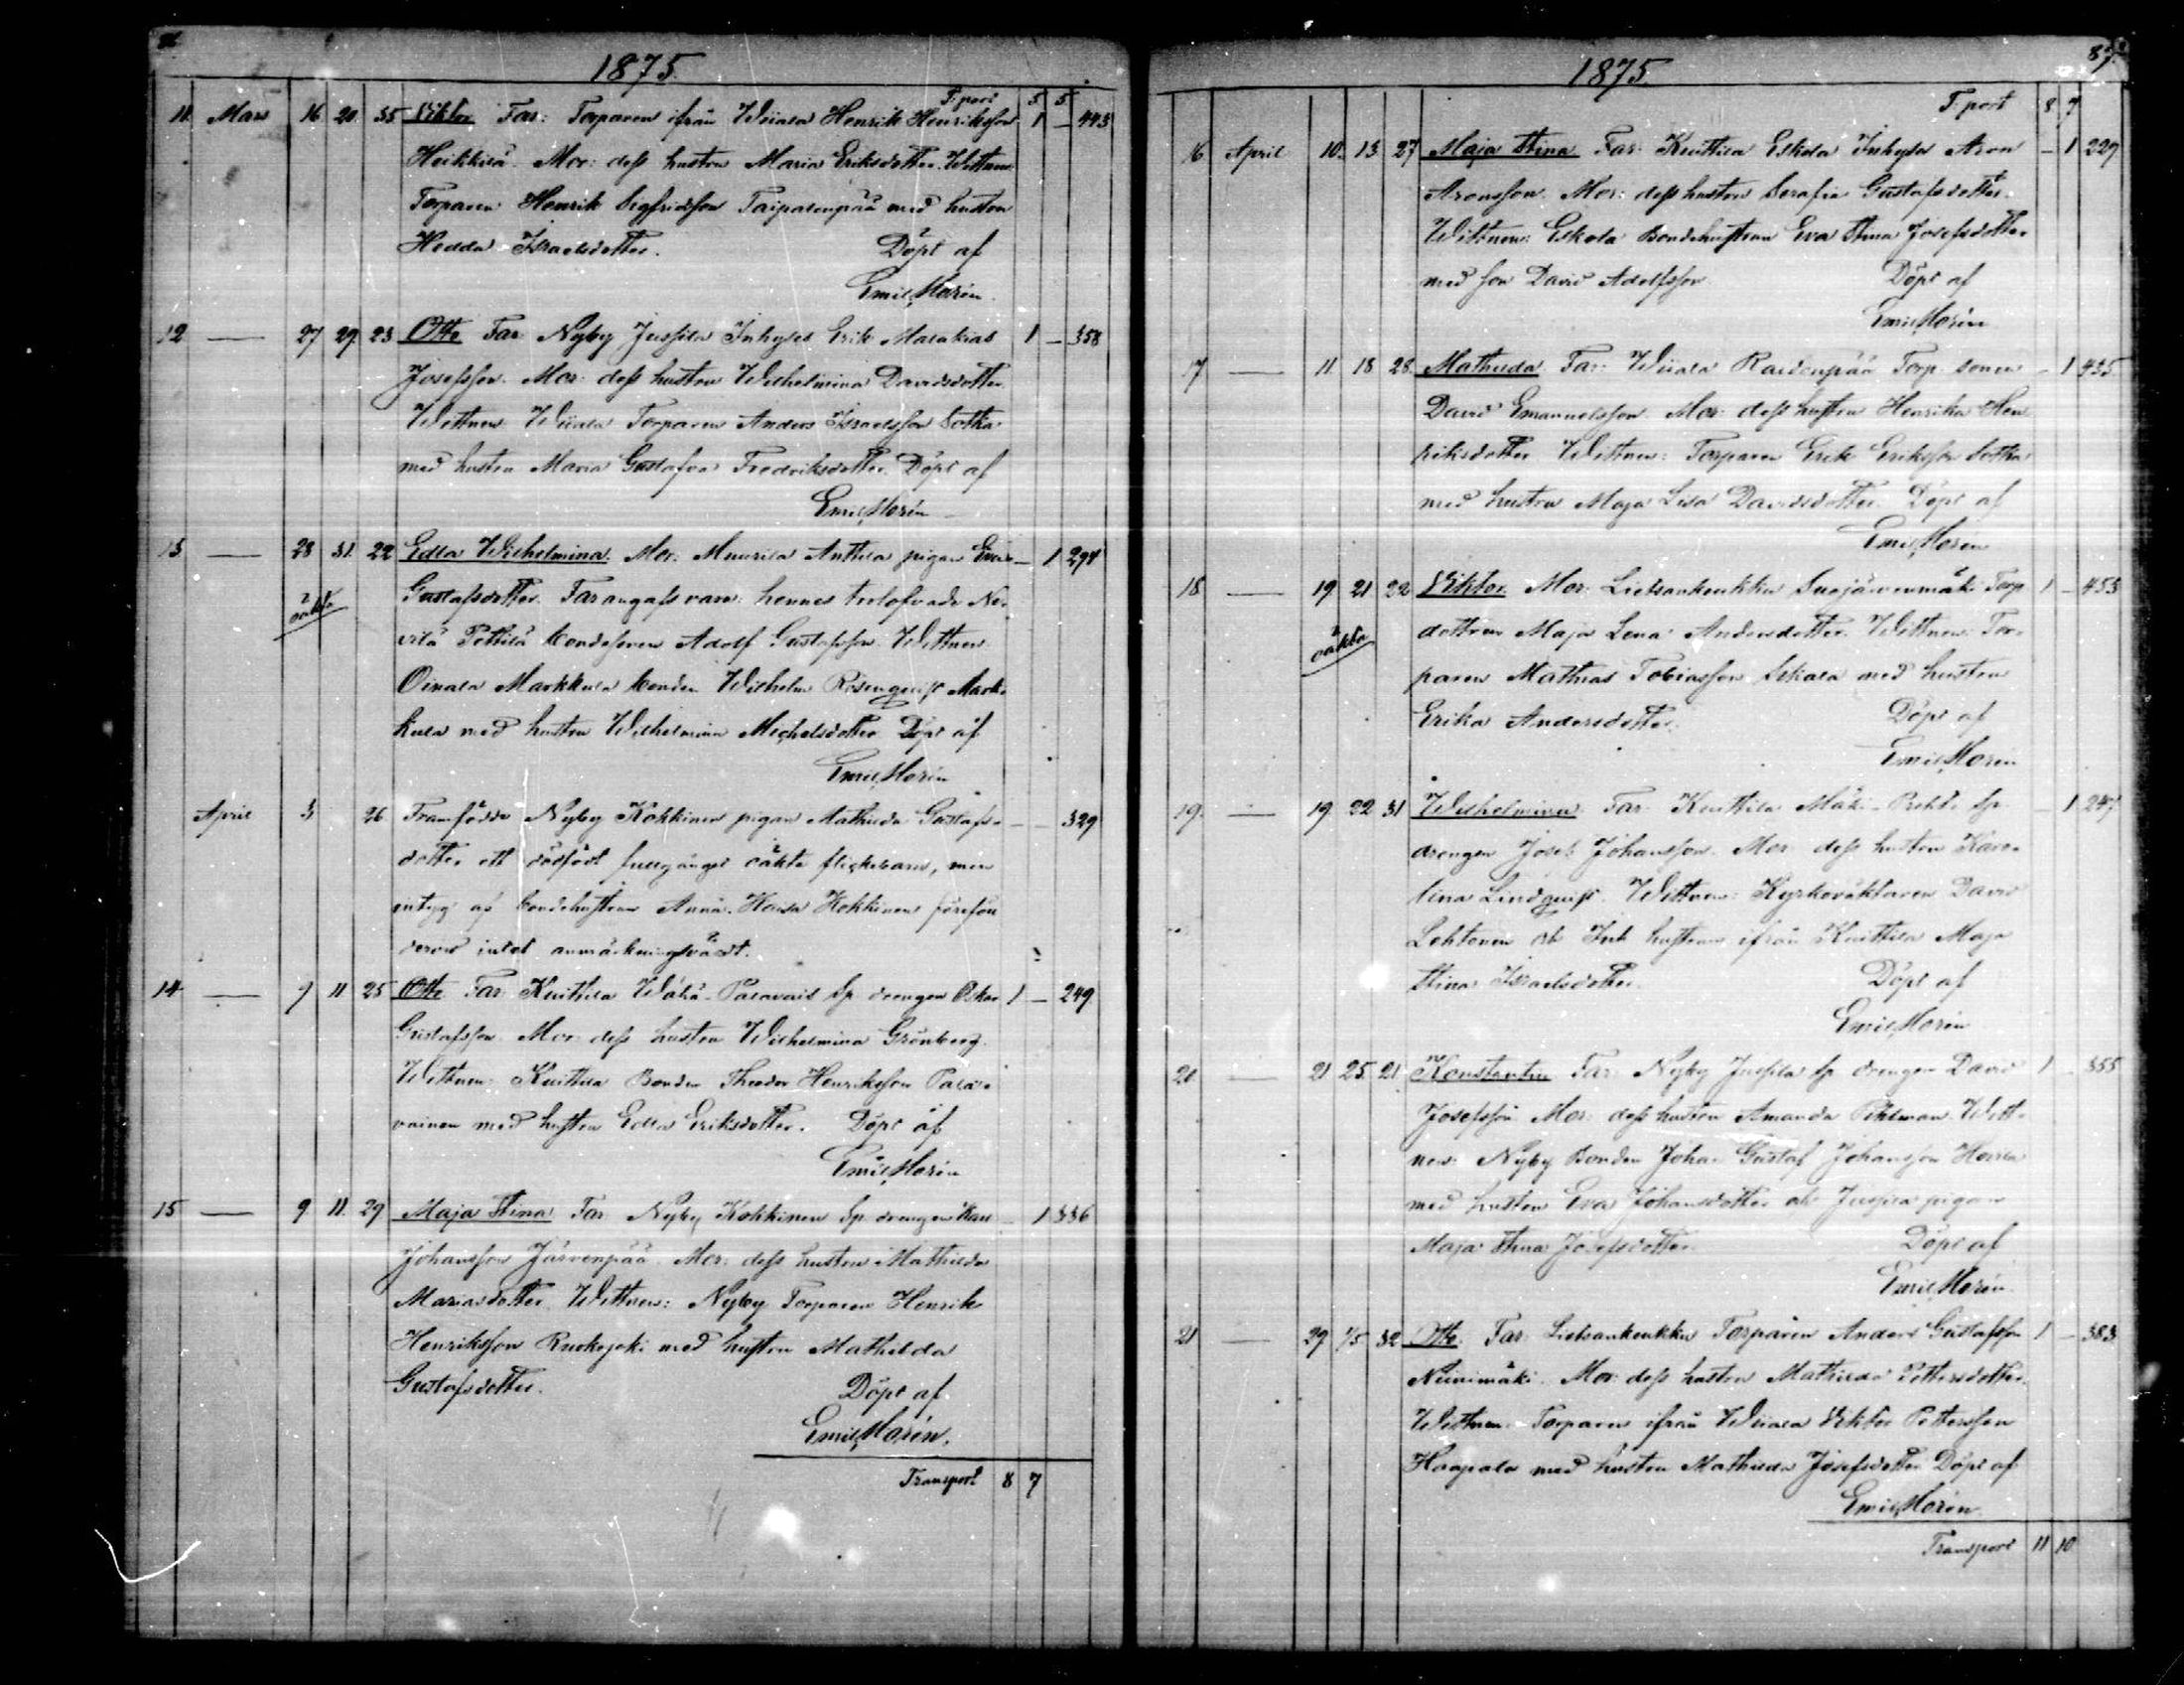 1875
T. port 5 5
11 Mars 16 20 35 Viktor Far: Torparen ifrån Wiiala Henrik Henriksson 1 – 443
Heikkilä. Mor: dess hustru Maria Eriksdotter. Wittnen:
Torparen Henrik Sigfridsson Taipalenpää med hustru
Hedda Israelsdotter. Döpt af
Emil Morén.
12 — 27 29 23 Otto Far: Nyby Jussila Inhyses Erik Malakias 1 – 358
Josefsson. Mor: dess hustru Wilhelmina Davidsdotter.
Wittnen: Wiiala Torparen Anders Israelsson Sotka
med hustru Maria Gustafva Fredriksdotter. Döpt af
Emil Morén
13 — 28 31 22 Edla Wilhelmina. Mor: Muurila Anttila pigan Eva – 1 298
oäkta Gustafsdotter. Far angafs vara: hennes trolofvade
Pettilä bondesonen Adolf Gustafsson. Wittnen:
Oinala Markkula bonden Wilhelm Rosenquist Mark-
kula med hustru Wilhelmina Michelsdotter. Döpt af
Emil Morén
April 3 26 Framfödde Nyby Kokkinen pigan Mathilda Gustafs- – – 329
dotter ett dödfödt fullgånget oäkta flickebarn, men
intyg af bondehustrun Anna Kaisa Kokkinen förefön
derom intet anmärkningsvärdt.
14 — 7 11 25 Otto Far: Knuttila Wähä-Palavais Sp. drengen Oskar 1 – 249
Gustafsson. Mor: dess hustru Wilhelmina Grönberg.
Wittnen: Knuttila Bonden Theodor Henriksson Pala-
vainen med hustru Edla Eriksdotter. Döpt af
Emil Morén
15 — 9 11 29 Maja Stina Far: Nyby Kokkinen Sp. drengen Karl – 1 336
Johansson Järvenpää. Mor: dess hustru Mathilda
Mariasdotter. Wittnen: Nyby Torparen Henrik
Henriksson Ruokojoki med hustru Mathilda
Gustafsdotter. Döpt af
Emil Morén.
Transport 8 7
87.
1875.
T. port 8 7
16 April 10 13 27 Maja Stina Far: Knuttila Eskola Inhyses Aron – 1 229
Aronsson. Mor: dess hustru Serafia Gustafsdotter.
Wittnen: Eskola Bondehustrun Eva Stina Josefsdotter
med son David Adolfsson Döpt af
Emil Morén
17 — 11 18 28 Mathilda Far: Wiiala Raidenpää Torp. sonen – 1 435
David Emanuelsson. Mor: dess hustru Henrika Hen
riksdotter Wittnen: Torparen Erik Eriksson Sotka
med hustru Maja Lisa Davidsdotter. Döpt af
Emil Morén
18 — 19 21 22 Viktor. Mor: Lietsankeukku Suojärvenmäki Torp 1 – 453
oäkta dottren Maja Lena Andersdotter. Wittnen: Tor-
paren Mathias Tobiasson Sikala med hustru
Erika Andersdotter. Döpt af
Emil Morén
19 — 19 22 31 Wilhelmina Far: Knuttila Mäki- Sp. 1 247
drengen Josef Johansson. Mor: dess hustru Karo-
lina Lindquist. Wittnen: Kyrkoväktaren David
Lehtonen och Inh. hustrun ifrån Knuttila Maja
Stina Israelsdotter. Döpt af
Emil Morén
20 — 21 25 21 Konstantin Far: Nyby Jussila Sp. drengen David 1 – 355
Josefsson. Mor: dess hustru Amanda Pihlman. Witt-
nen: Nyby Bonden Johan Gustaf Johansson Heirla
med hustru Eva Johansdotter och Jussila pigan
Maja Stina Josefsdotter. Döpt af
Emil Morén.
21 — 29 1/5 32 Otto. Far: Lietsankeukku Torparen Anders Gustafsson 1 – 383
Niinimäki. Mor: dess hustru Mathilda Pettersdotter.
Wittnen: Torparen ifrån Wiiala Viktor Pettersson
Haapala med hustru Mathilda Josefsdotter. Döpt af
Emil Morén.
Transport 11 10